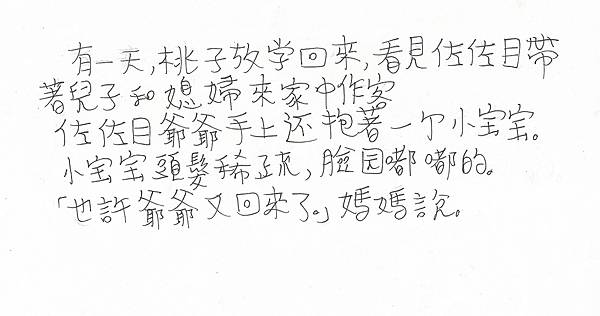 有一天,桃子放学回來,看見佐佐目帶
著兒子和媳婦來家中作客
佐佐目爺爺手上还抱著一个小宝宝。
小宝宝頭髮稀疏,臉园嘟嘟的。
「也許爺爺又回來了。」媽媽說。